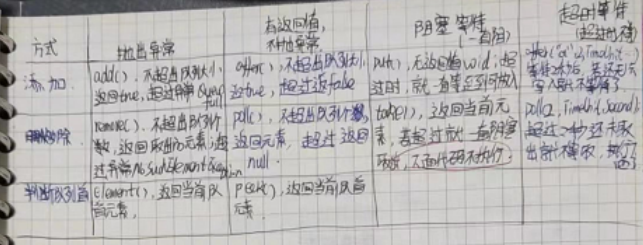 方式
抛出异常
有返回值，
不抛出异常
阻塞 等待
(一直阻)
超时等待
(超过时间)
添加
add()，不超出队列大小，
返回true，超过异常 Queue
full
offer()，不超出队列大小，
返true，超过返false
put()，无返回值void，超
过时，就一直等到可放入
offer("d",2,TimeUnit
移除
remove()，不超出队列个
数，返回取出的元素，超
过异常NoSuchElementException
poll()，不超出队列个数，
返回元素，超过返回
null.
take()，返回当前元
素，若超过就一直阻塞
不执行
poll(2,TimeUnit.Second)
超过2秒还未取
判断队列首
element()，返回当前队
首元素.
peek()，返回当前队首
元素.